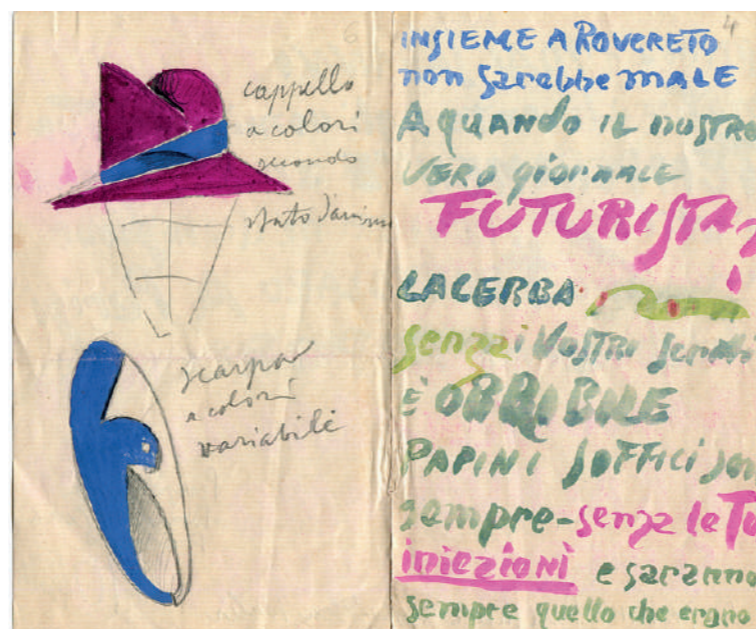 6
cappello
a colori
secondo
stato d'animo
scarpa
a colori
variabile
4
INSIEME A ROVERETO
non sarebbe MALE
A QUANDO IL nostro
VERO giornale
FUTURISTA?
LACERBA
senza i VOSTRI scritti
È ORRIBILE
PAPINI SOFFICI
sempre - senza le TU
iniezioni e saranno
sempre quello che erano